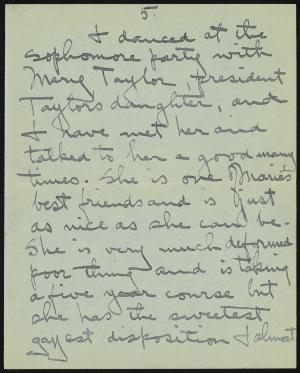 5.
I danced at the
sophomore party with
Mary Taylor, president
Taylors daughter, and
I have met her and
talked to her a good many
times. She is one of Marie's
best friends and is just
as nice as she can be.
She is very much deformed
poor thing and is taking
a five year course but
she has the sweetest
gayest disposition I almost